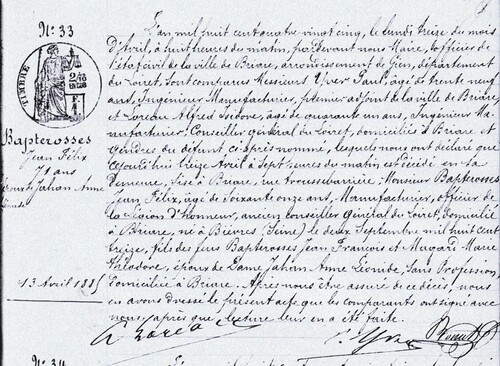 N: 33
TIMBRE
2/10
EN SUS
F.
Bapterosses
Jean Félix
71 ans
époux de Jahan Anne
Léonide
13 Avril 1885
L'an mil huit cent quatre vingt cinq, le lundi treize du mois
d'Avril, à huit heures du matin, par devant nous Maire, officier de
l'état civil de la ville de Briare, arrondissement de Gien, département
du Loiret, sont comparus Messieurs Yver Paul, âgé de trente neuf
ans, Ingénieur Manufacturier, premier adjoint de la ville de Briare
et Loreau Alfred Isidore, âgé de quarante un ans, Ingénieur Ma-
nufacturier, Conseiller général du Loiret, domiciliés à Briare et
gendres du défunt ci-après nommé, lesquels nous ont déclaré que
cejourd'hui treize Avril à sept heures du matin est décédé en sa
demeure, sise à Briare, rue Trousse barrière, Monsieur Bapterosses
Jean Félix, âgé de soixante onze ans, Manufacturier, officier de
la Légion d'Honneur, ancien conseiller Général du Loiret, domicilié
à Briare, né à Bièvres (Seine) le deux Septembre mil huit cent
treize, fils des feus Bapterosses Jean François et Marie
Théodore, époux de Dame Jahan Anne Léonide, sans profession,
domiciliée à Briare. Après nous être assuré de ce décès, nous
en avons dressé le présent acte que les comparants ont signé avec
nous, après que lecture leur en a été faite.
A Loreau
P. Yver
N: 34